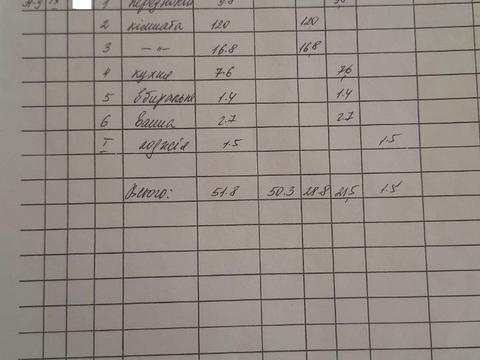 1 передпокій 9.8 9.8
2 кімната 12.0 12.0
3 — „ — 16.8 16.8
4 кухня 7.6 7.6
5 вбиральня 1.4 1.4
6 ванна 2.7 2.7
I лоджія 1.5 1.5
Всього: 51.8 50.3 28.8 21.5 1.5